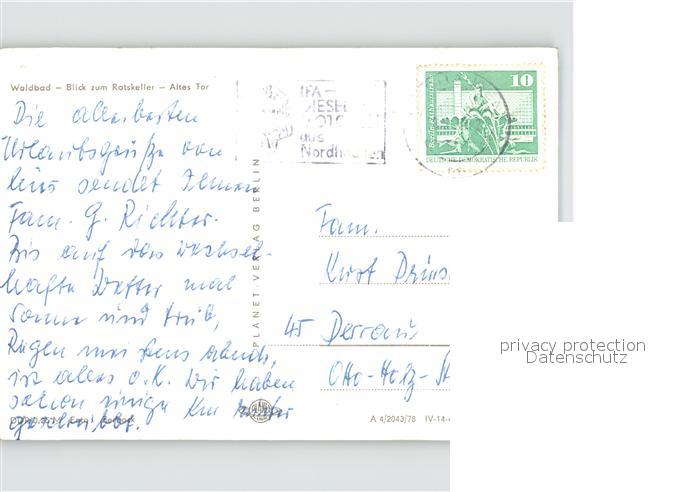 Waldbad – Blick zum Ratskeller – Altes Tor
Die allerbesten
Urlaubsgrüße von
hier sendet Ihnen
Fam. G. Richter.
Bis auf das wechsel-
hafte Wetter mal
Sonne und trüb,
Regen meistens abends,
ist alles o.K. Wir haben
schon einige Km
IFA –
DIESEL
MOTO
aus
Nordhausen
10
DEUTSCHE DEMOKRATISCHE REPUBLIK
PLANET VERLAG BERLIN
Fam.
Kurt
45 Dessau
Otto-Holz-St
A 4/2043/78 IV-14-
privacy protection
Datenschutz